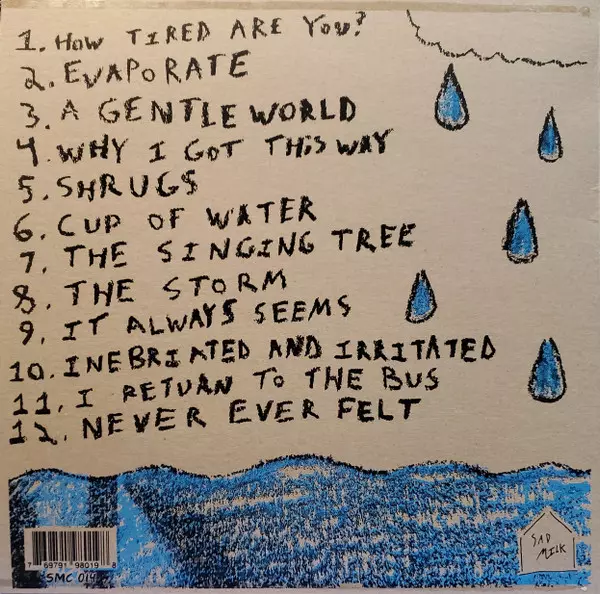 1. HOW TIRED ARE YOU?
2. EVAPORATE
3. A GENTLE WORLD
4. WHY I GOT THIS WAY
5. SHRUGS
6. CUP OF WATER
7. THE SINGING TREE
8. THE STORM
9. IT ALWAYS SEEMS
10. INEBRIATED AND IRRITATED
11. I RETURN TO THE BUS
12. NEVER EVER FELT
SAD
MILK
7 69791 98019 8
SMC 019